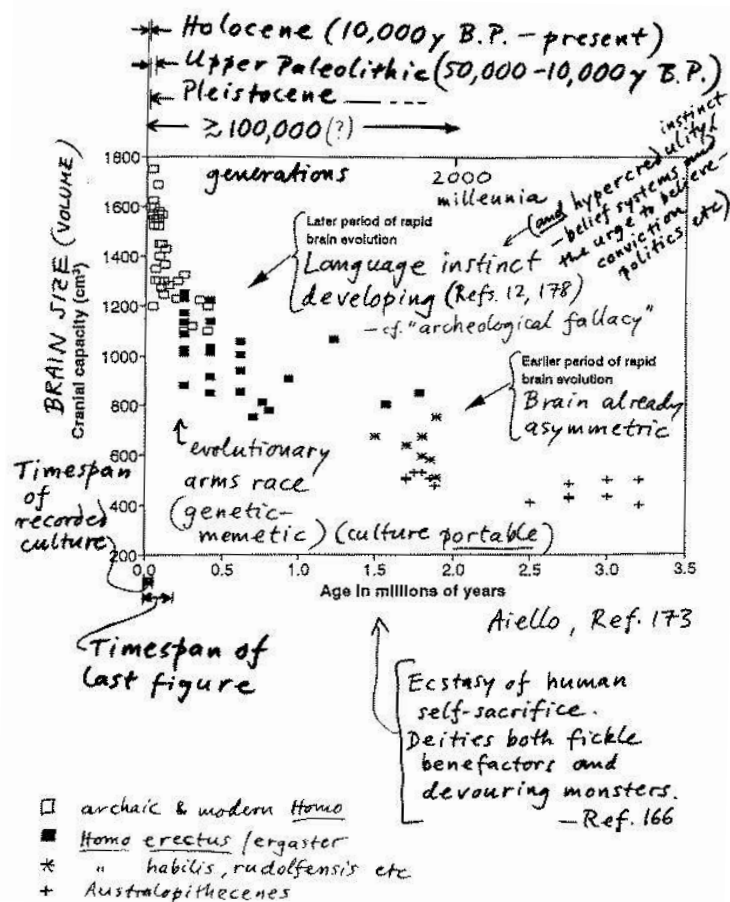 Holocene (10,000 y B.P. – present)
Upper Paleolithic (50,000 – 10,000 y B.P.)
Pleistocene
≳ 100,000 (?)
generations
2000
millennia
instinct
(and hypercredulity
– belief systems and
the urge to believe –
conviction
politics etc)
BRAIN SIZE (VOLUME)
Cranial capacity (cm³)
1800
1600
1400
1200
1000
800
600
400
200
Later period of rapid
brain evolution
Language instinct
developing (Refs. 12, 178)
– cf. "archeological fallacy"
Earlier period of rapid
brain evolution
Brain already
asymmetric
evolutionary
arms race
(genetic-
memetic) (culture portable)
Timespan
of
recorded
culture
0.0 0.5 1.0 1.5 2.0 2.5 3.0 3.5
Age in millions of years
Timespan of
last figure
Aiello, Ref. 173
Ecstasy of human
self-sacrifice.
Deities both fickle
benefactors and
devouring monsters.
– Ref. 166
□ archaic & modern Homo
■ Homo erectus / ergaster
* " habilis, rudolfensis etc
+ Australopithecenes